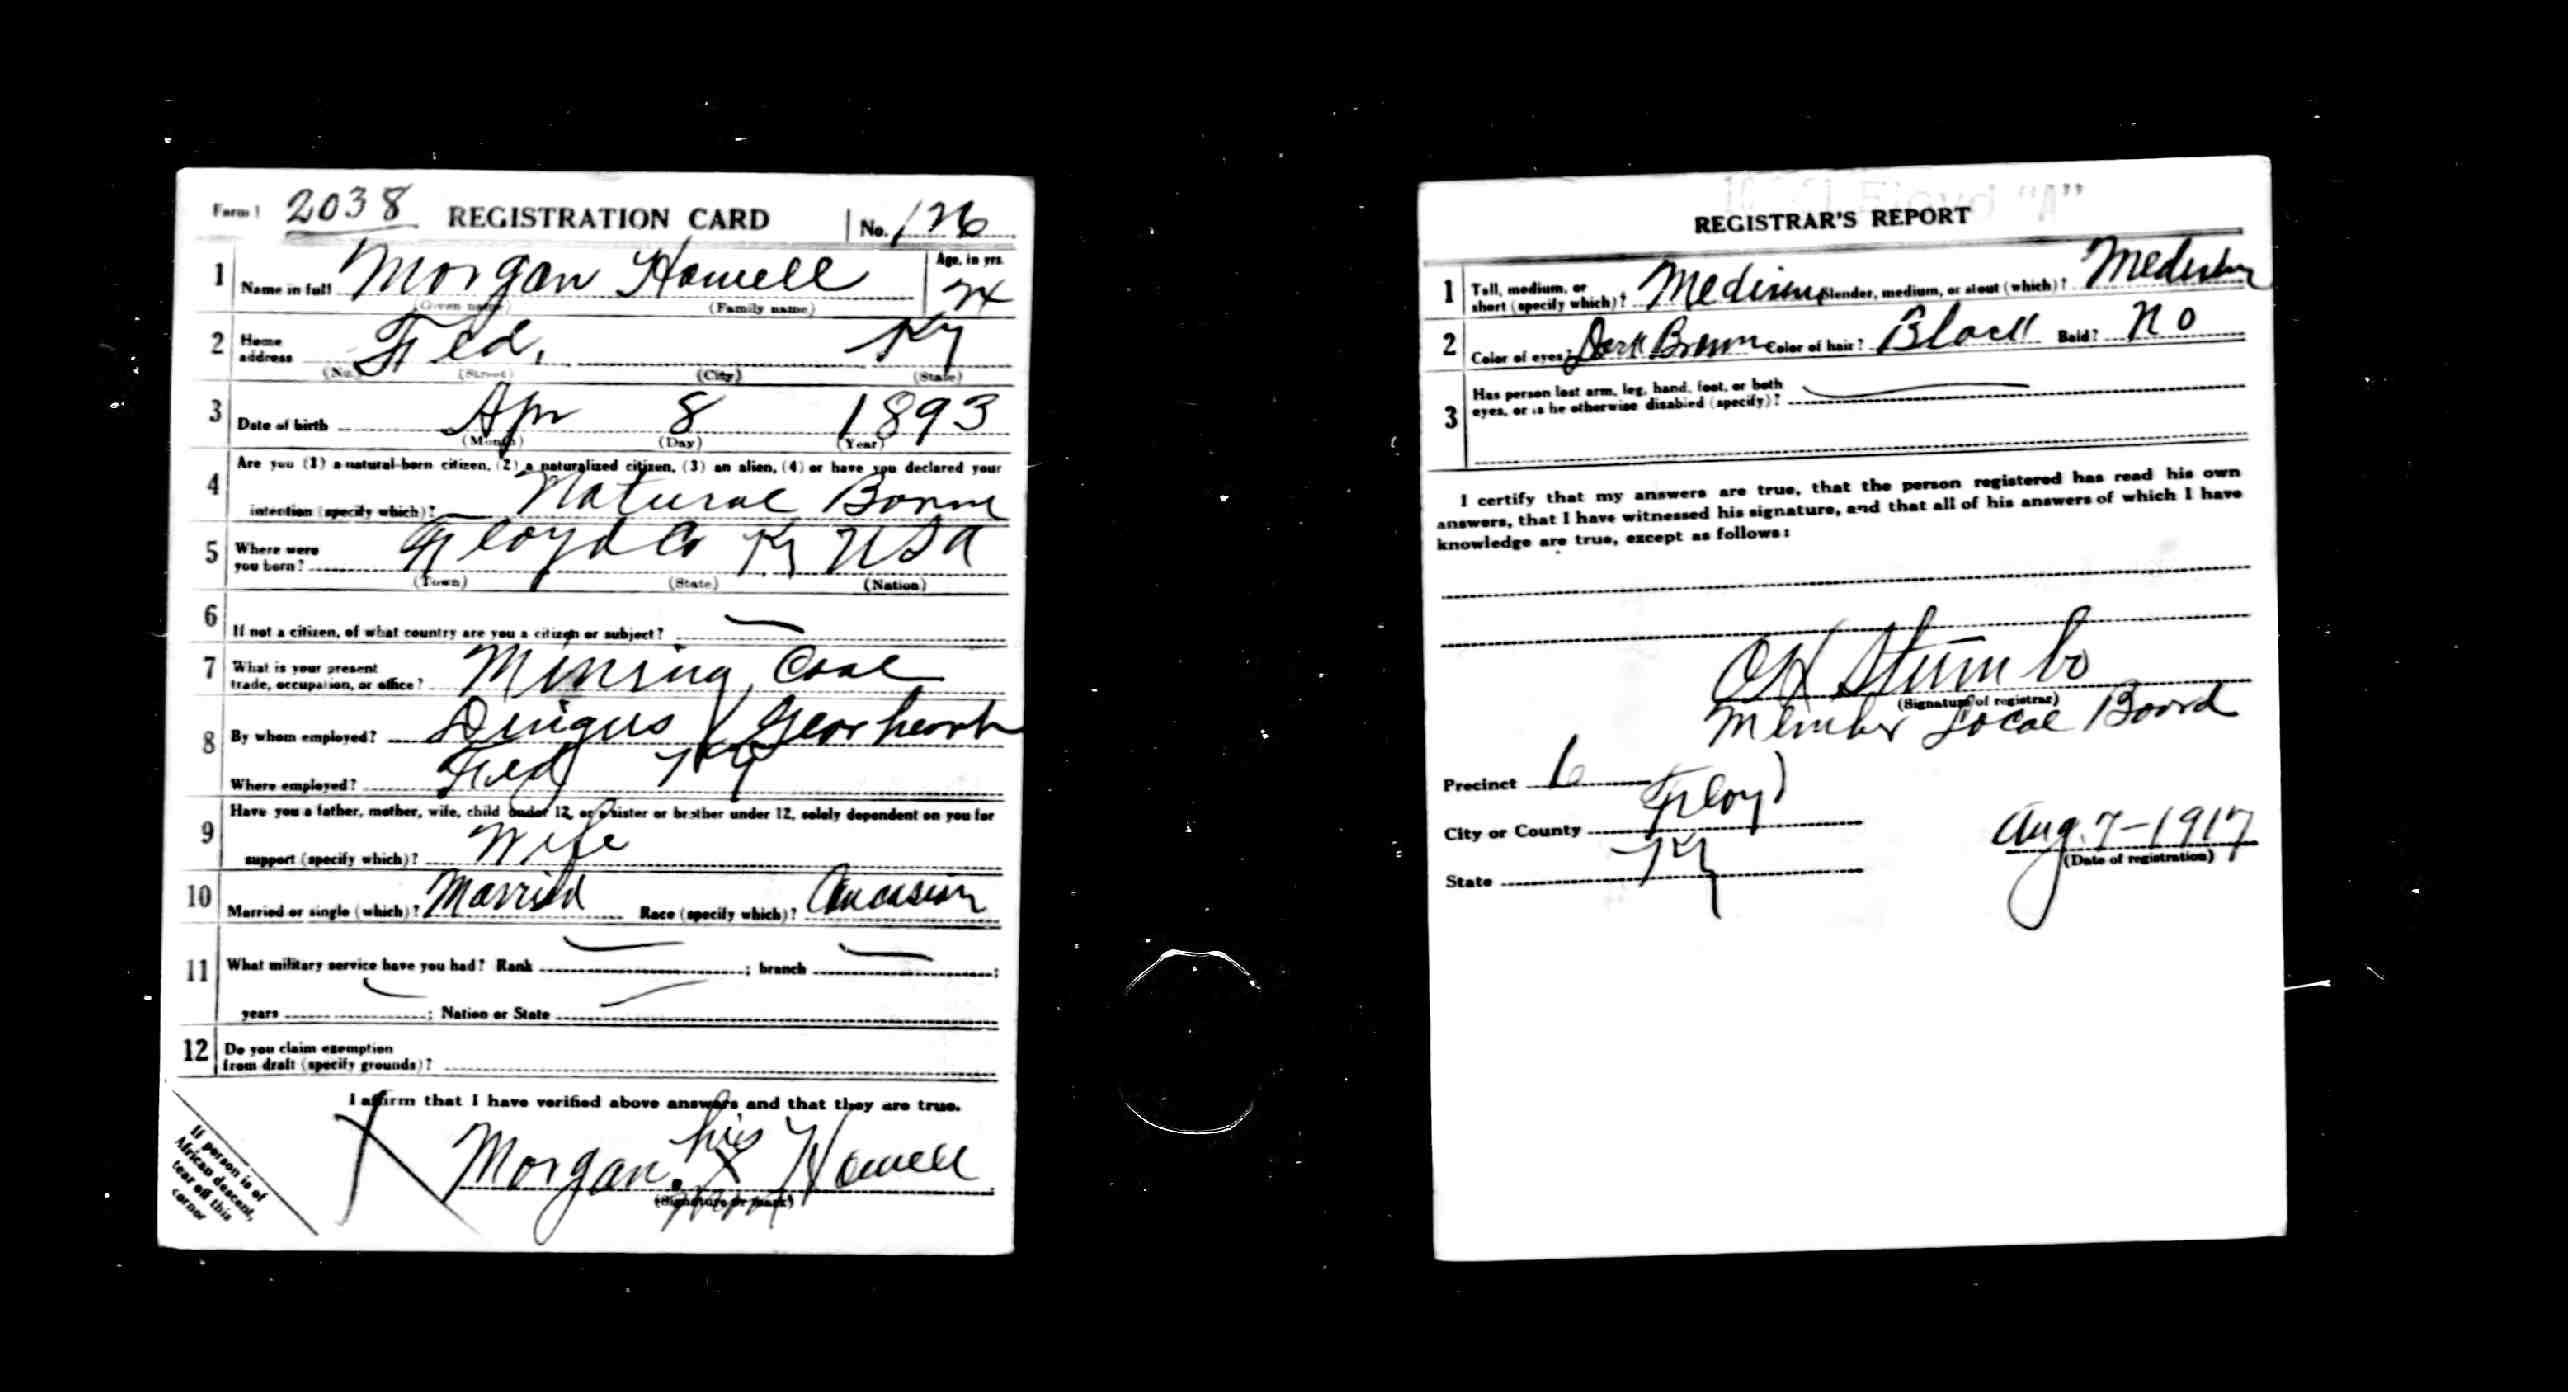 Form 1 2038 REGISTRATION CARD No. 126
1 Name in full Morgan Howell Age, in yrs. 24
(Given name) (Family name)
2 Home address Fed, Ky
(No.) (Street) (City) (State)
3 Date of birth Apr 8 1893
(Month) (Day) (Year)
4 Are you (1) a natural-born citizen, (2) a naturalized citizen, (3) an alien, (4) or have you declared your
intention (specify which)? Natural Born
5 Where were you born? Floyd Co Ky USA
(Town) (State) (Nation)
6 If not a citizen, of what country are you a citizen or subject?
7 What is your present trade, occupation, or office? Mining Coal
8 By whom employed? Dingus Gearheart
Where employed? Fed Ky
9 Have you a father, mother, wife, child under 12, or a sister or brother under 12, solely dependent on you for
support (specify which)? Wife
10 Married or single (which)? Married Race (specify which)? Caucasion
11 What military service have you had? Rank ; branch ;
years ; Nation or State
12 Do you claim exemption
from draft (specify grounds)?
I affirm that I have verified above answers and that they are true.
X Morgan his X Howell
(Signature or mark)
mark
If person is of
African descent,
tear off this
corner
REGISTRAR'S REPORT
1 Tall, medium, or
short (specify which)? Medium Slender, medium, or stout (which)? Medium
2 Color of eyes? Dark Brown Color of hair? Black Bald? No
3 Has person lost arm, leg, hand, foot, or both
eyes, or is he otherwise disabled (specify)?
I certify that my answers are true, that the person registered has read his own
answers, that I have witnessed his signature, and that all of his answers of which I have
knowledge are true, except as follows:
OH Stumbo
(Signature of registrar)
Member Local Board
Precinct 6
City or County Floyd
Aug. 7-1917
(Date of registration)
State Ky